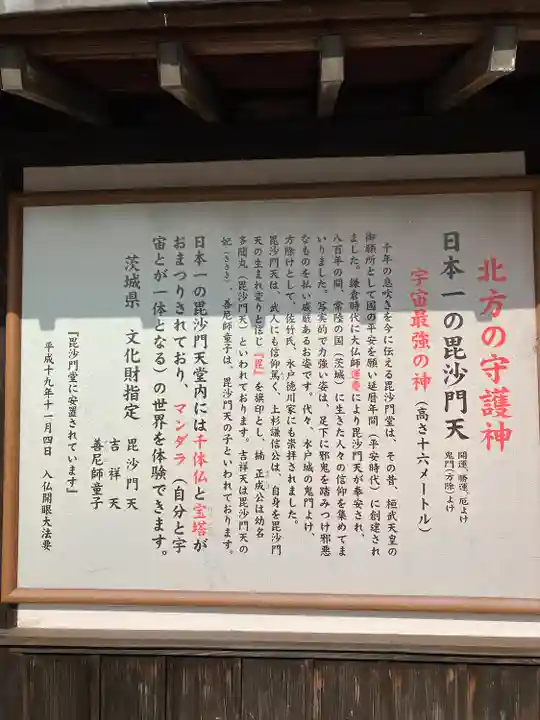 北方の守護神
日本一の毘沙門天
開運、勝運、厄よけ
鬼門(方除)よけ
宇宙最強の神(高さ十六メートル)
千年の息吹きを今に伝える毘沙門堂は、その昔、桓武天皇の
御願所として国の平安を願い延暦年間(平安時代)に創建され
ました。鎌倉時代に大仏師運慶により毘沙門天が奉安され、
八百年の間、常陸の国(茨城)に生きた人々の信仰を集めてま
いりました。写実的で力強い姿は、足下に邪鬼を踏みつけ邪悪
なものを払い威厳あるお姿です。代々、水戸城の鬼門よけ、
方除けとして、佐竹氏、水戸徳川家にも崇拝されました。
毘沙門天は、武人にも信仰篤く、上杉謙信公は、自身を毘沙門
天の生まれ変りと信じ『毘』を旗印とし、楠正成公は幼名
多聞丸(毘沙門天)といわれております。吉祥天は毘沙門天の
妃(きさき)、善尼師童子は、毘沙門天の子といわれております。
日本一の毘沙門天堂内には千体仏と宝塔が
おまつりされており、マンダラ(自分と宇
宙とが一体となる)の世界を体験できます。
茨城県 文化財指定 毘沙門天
吉祥天
善尼師童子
『毘沙門堂に安置されています』
平成十九年十一月四日 入仏開眼大法要